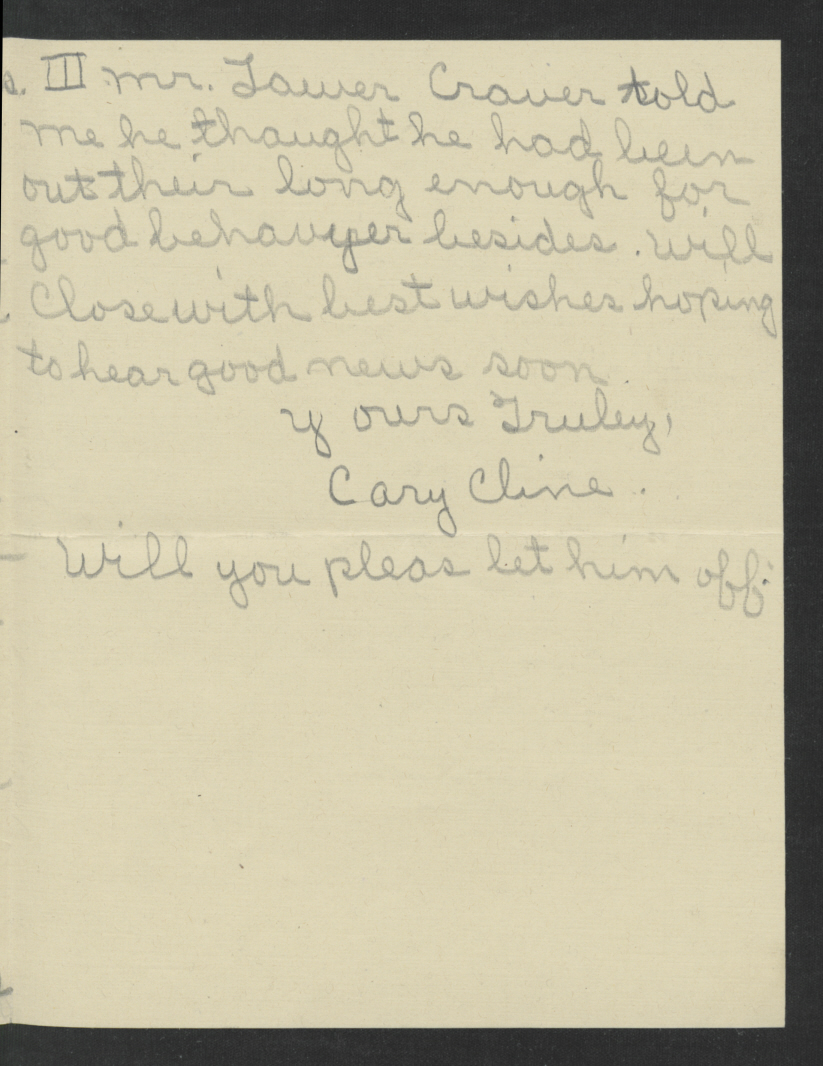 III Mr. Lawer Craver told
me he thaught he had been
out their long enough for
good behavyer besides. Will
Close with best wishes hoping
to hear good news soon
Yours Truley,
Cary Cline.
Will you pleas let him off.